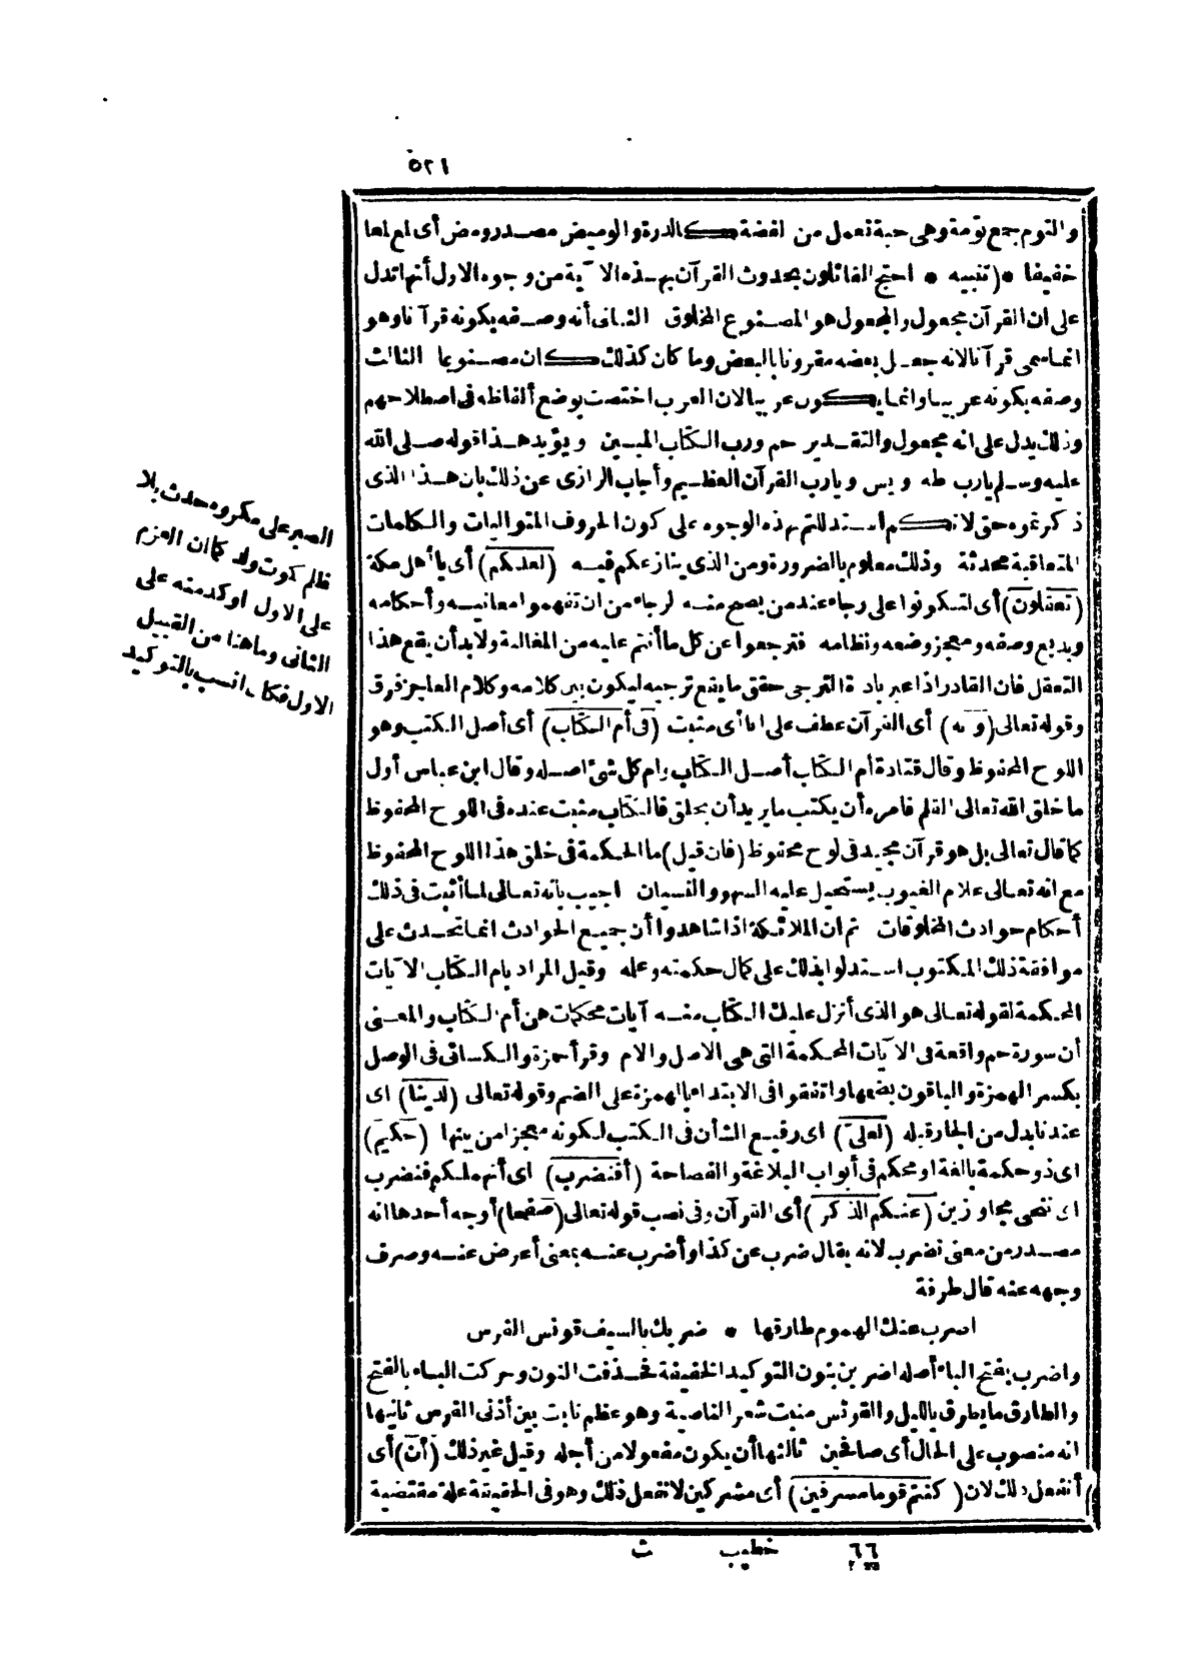 ٥٢١
والتوم جمع تومة وهى حبة تعمل من الفضة كالدرة والوميض مصدر ومض أى لمع لمعا
خفيفا * (تنبيه * احتج القائلون بحدوث القرآن بهذه الآية من وجوه الاول أنها تدل
على ان القرآن مجعول والمجعول هو المصنوع المخلوق الثانى أنه وصفه بكونه قرآنا وهو
انما سمى قرآنا لانه جعل بعضه مقرونا بالبعض وما كان كذلك كان مصنوعا الثالث
وصفه بكونه عربيا وانما يكون عربيا لان العرب اختصت بوضع ألفاظه فى اصطلاحهم
وذلك يدل على انه مجعول والتقدير حم ورب الكتاب المبين ويؤيد هذا قوله صلى الله
عليه وسلم يارب طه ويس ويارب القرآن العظيم وأجاب الرازى عن ذلك بان هذا الذى
ذكرتموه حق لانكم استدللتم بهذه الوجوه على كون الحروف المتواليات والكلمات
المتعاقبة محدثة وذلك معلوم بالضرورة ومن الذى ينازعكم فيه (لعلكم) أى يا أهل مكة
(تعقلون) أى لتكونوا على رجاء عند من يصح منه لرجاء من ان تفهموا معانيه وأحكامه
وبديع وصفه ومعجز وضعه ونظامه فترجعوا عن كل ما أنتم عليه من المغالبة ولا بد أن يقع هذا
التعقل فان القادر اذا عبر باداة الترجى حقق ما يقع ترجيه ليكون بين كلامه وكلام العاجز فرق
وقوله تعالى (وانه) أى القرآن عطف على انا أى مثبت (فى أم الكتاب) أى أصل الكتب وهو
اللوح المحفوظ وقال قتادة أم الكتاب أصل الكتاب وام كل شئ اصله وقال ابن عباس أول
ما خلق الله تعالى القلم فامره أن يكتب ما يريد أن يخلق فالكتاب مثبت عنده فى اللوح المحفوظ
كما قال تعالى بل هو قرآن مجيد فى لوح محفوظ (فان قيل) ما الحكمة فى خلق هذا اللوح المحفوظ
مع انه تعالى علام الغيوب يستحيل عليه السهو والنسيان اجيب بانه تعالى لما أثبت فى ذلك
أحكام حوادث المخلوقات ثم ان الملائكة اذا شاهدوا أن جميع الحوادث انما تحدث على
موافقة ذلك المكتوب استدلوا بذلك على كمال حكمته وعلمه وقيل المراد بام الكتاب الآيات
المحكمة لقوله تعالى هو الذى أنزل عليك الكتاب منه آيات محكمات هن أم الكتاب والمعنى
أن سورة حم واقعة فى الآيات المحكمة التى هى الاصل والام وقرأ حمزة والكسائى فى الوصل
بكسر الهمزة والباقون بضمها واتفقوا فى الابتداء بالهمزة على الضم وقوله تعالى (لدينا) اى
عندنا بدل من الجار قبله (لعلى) اى رفيع الشأن فى الكتب لكونه معجزا من بينها (حكيم)
اى ذو حكمة بالغة او محكم فى أبواب البلاغة والفصاحة (أفنضرب) اى أنهملكم فنضرب
اى ننحى مجاوزين (عنكم الذكر) أى القرآن وفى نصب قوله تعالى (صفحا) أوجه أحدها انه
مصدر من معنى نضرب لانه يقال ضرب عن كذا وأضرب عنه بمعنى أعرض عنه وصرف
وجهه عنه قال طرفة
اضرب عنك الهموم طارقها * ضربك بالسيف قونس الفرس
واضرب بفتح الباء أصله اضربن بنون التوكيد الخفيفة فحذفت النون وحركت الباء بالفتح
والطارق ما يطرق بالليل والقونس منبت شعر الناصية وهو عظم ناىٔ بين أذنى الفرس ثانيها
انه منصوب على الحال أى صافحين ثالثها أن يكون مفعولا من أجله وقيل غير ذلك (أن) أى
أنفعل ذلك لان (كنتم قوما مسرفين) أى مشركين لا نفعل ذلك وهو فى الحقيقة علة مقتضية
٦٦ خطيب ث
الصبر على مكروه حدث بلا
على الاول اوكد منه على
الثانى وما هنا من القبيل
الاول فكان انسب بالتوكيد